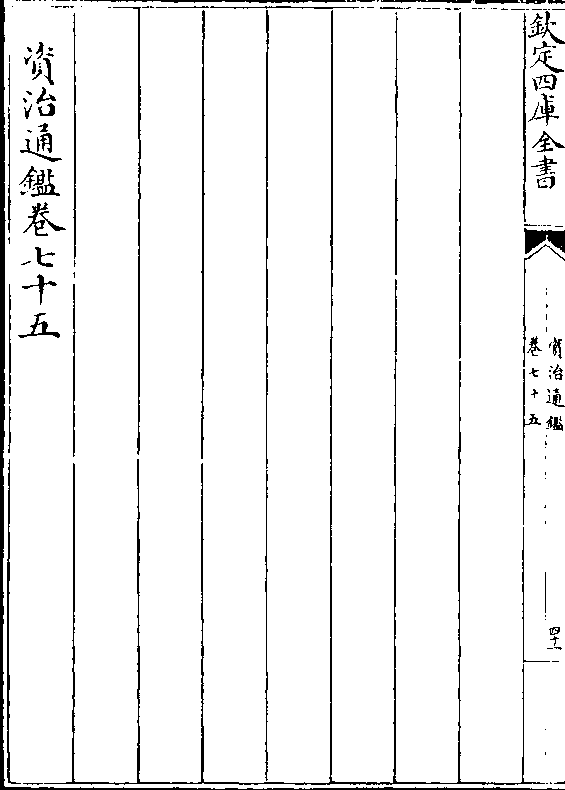 欽定四庫全書
資治通鑑
卷七十五
四十一
資治通鑑卷七十五